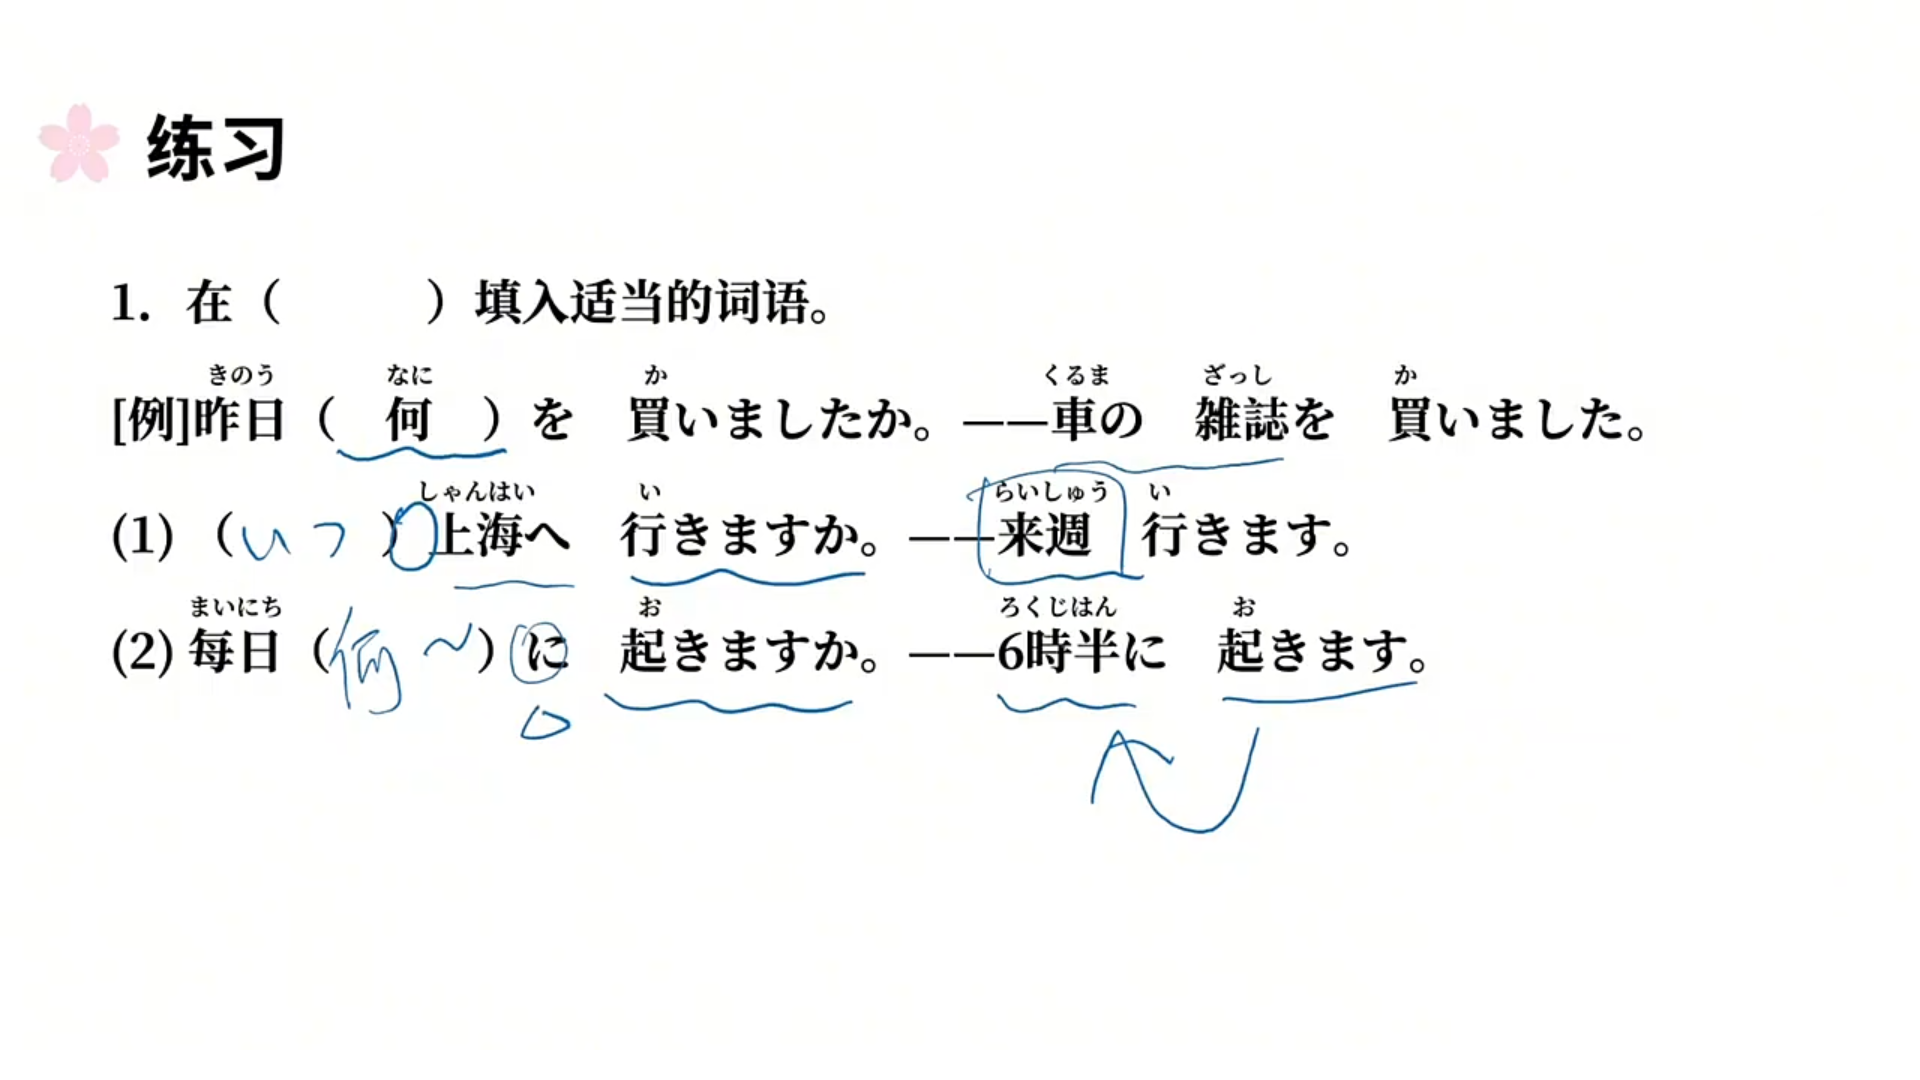 练习
1. 在（　　）填入适当的词语。
きのう なに か くるま ざっし か
[例]昨日（ 何 ）を 買いましたか。——車の 雑誌を 買いました。
しゃんはい い らいしゅう い
(1) （いつ）上海へ 行きますか。——来週 行きます。
まいにち お ろくじはん お
(2) 毎日（何～）に 起きますか。——6時半に 起きます。